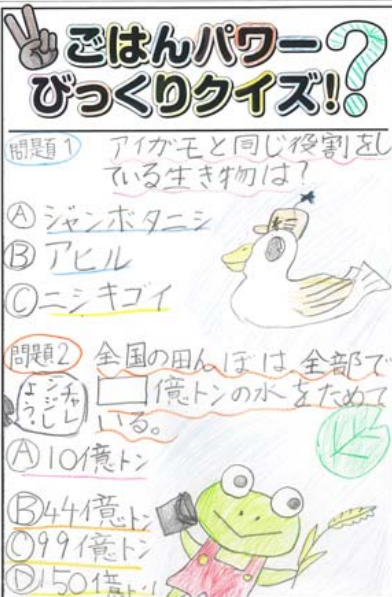 ごはんパワー
びっくりクイズ!?
問題1 アイガモと同じ役割をし
ている生き物は?
Ⓐジャンボタニシ
Ⓑアヒル
Ⓒニシキゴイ
問題2 全国の田んぼは全部で
□億トンの水をためて
いる。
チャレ
ンジし
よう。
Ⓐ10億トン
Ⓑ44億トン
Ⓒ99億トン
Ⓓ150億トン